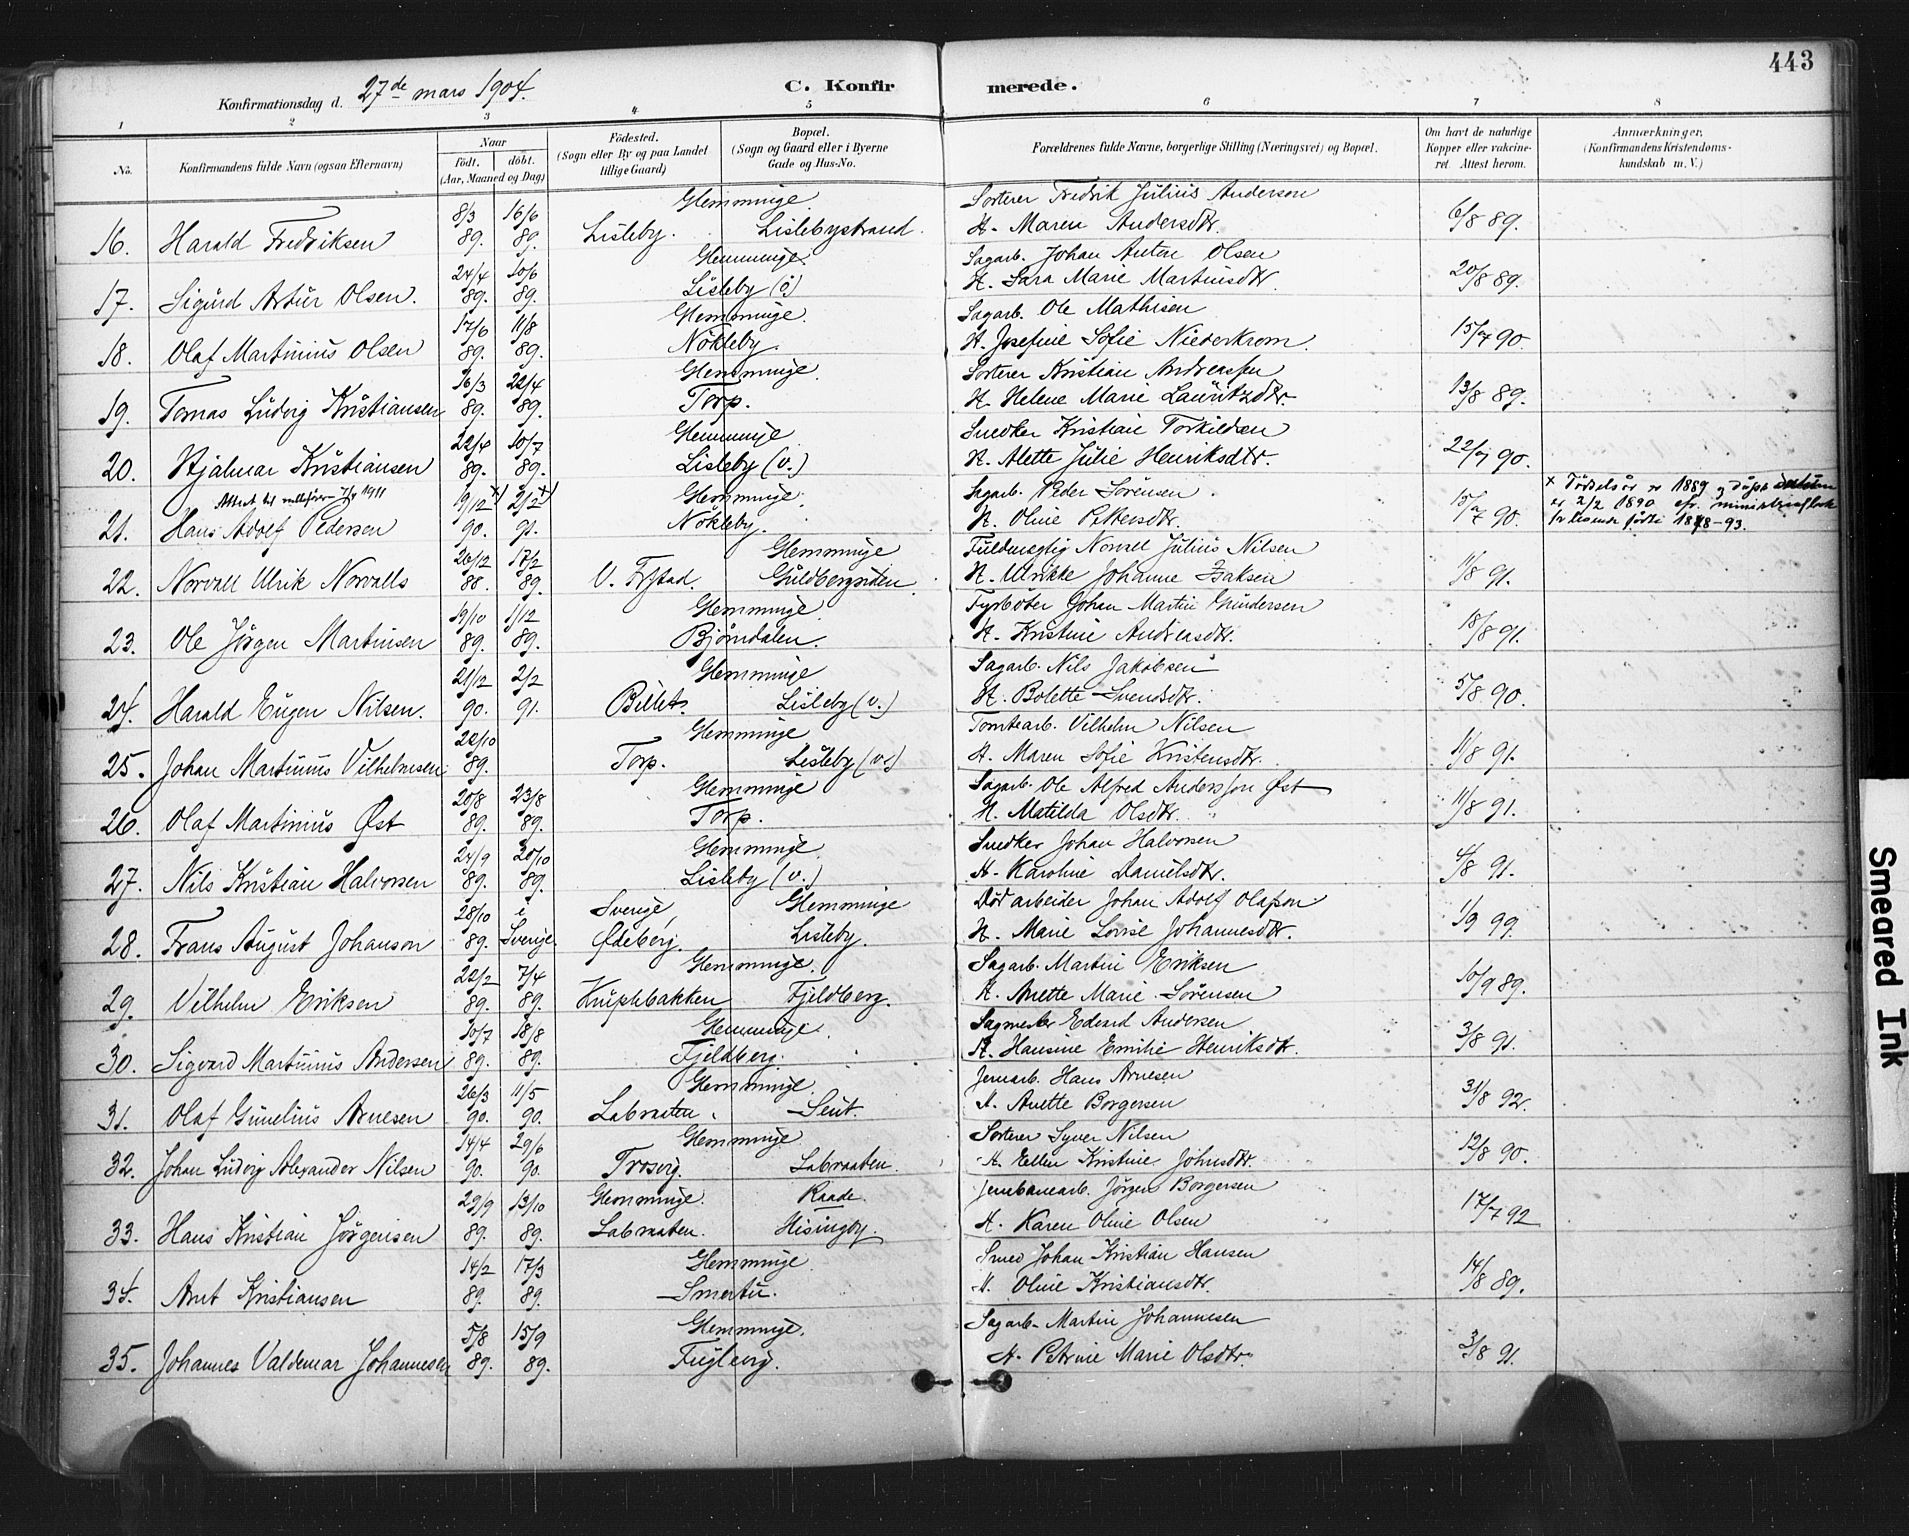 443
Konfirmationsdag d. 27de mars 1904. C. Konfirmerede.
1 2 3 4 5 6 7 8
No. Konfirmandens fulde Navn (ogsaa Efternavn) Naar födt. döbt. (Aar, Maaned og Dag) Födested. (Sogn eller By og paa Landet tillige Gaard) Bopæl. (Sogn og Gaard eller i Byerne Gade og Hus-No. Forældrenes fulde Navne, borgerlige Stilling (Næringsvei) og Bopæl. Om havt de naturlige Kopper eller vaccineret. Attest herom. Anmærkninger, (Konfirmandens Kristendomskundskab m. V.)
8/3 16/6 Glemminge. Sorterer Fredrik Julius Anderson
16. Harald Fredriksen 89. 89. Lisleby. Lislebystrand. H. Maren Andersdtr. 6/8 89.
24/4 10/6 Glemminge. Sagarb. Johan Anton Olsen
17. Sigurd Artur Olsen. 89. 89. Lisleby (ö) H. Sara Marie Martinsdtr. 20/8 89.
17/6 11/8 Glemminge. Sagarb. Ole Mathisen
18. Olaf Martinius Olsen 89. 89. Nökleby. H. Josefine Sofie Niederkrom. 15/7 90.
16/3 22/4 Glemminge. Sorterer Kristian Andreassen
19. Tomas Ludvig Kristiansen 89. 89. Torp. H. Helene Marie Lauritzdtr. 13/8 89.
22/4 10/7 Glemminge Snedker Kristian Torkildsen
20. Hjalmar Kristiansen 89. 89. Lisleby (v.) H. Alette Julie Henriksdtr. 22/7 90.
Attest til 1911 19/12 x) 2/2 x) Glemminge Sagarb. Peder Sörensen x Födselsår er 1889 og
21. Hans Adolf Pedersen 90. 91. Nökleby. H. Oline Pettersdtr. 15/7 90. er 2/2 1890 cfr.
födte 1878-93.
26/12 17/2 Glemminge Fuldmægtig Norvall Julius Nilsen
22. Norvall Ulrik Norvalls 88. 89. V. Fr.stad. Guldbergsiden. H. Ulrikke Johanne Isaksen 11/8 91.
19/10 1/12 Glemminge Fyrböter Johan Martin Gundersen
23. Ole Jörgen Martinsen 89. 89. Björndalen. H. Kristine Andreasdtr. 18/8 91.
21/12 2/2 Glemminge Sagarb. Nils Jakobsen
24. Harald Eugen Nilsen. 90. 91. Billet. Lisleby (v.) H. Bolette Svendsdtr. 5/8 90.
22/10 Glemminge Tomtearb. Vilhelm Nilsen
25. Johan Martinius Vilhelmsen 89. Torp. Lisleby (v.) H. Maren Sofie Kristensdtr. 11/8 91.
20/8 23/8 Glemminge Sagarb. Ole Alfred Andersson Øst
26. Olaf Martinius Øst 89. 89. Torp. H. Matilda Olsdtr. 11/8 91.
24/9 20/10 Glemminge. Snedker Johan Halvorsen
27. Nils Kristian Halvorsen 89. 89. Lisleby (v.) H. Karoline Danielsdtr. 4/8 91.
28/10 i Sverige, Glemminge Död arbeider Johan Adolf Olafson
28. Frans August Johanson 89. Sverige Ødeborg. Lisleby. H. Marie Lovise Johannesdtr. 1/9 99.
22/2 7/4 Glemminge. Sagarb. Martin Eriksen
29. Vilhelm Eriksen 89. 89. Kniplebakken Fjeldberg. H. Anette Marie Sörensen 10/9 89.
10/7 18/8 Glemminge. Sagmester Edvard Andersen
30. Sigvard Martinius Andersen 89. 89. Fjeldberg. H. Hansine Emilie Henriksdtr. 3/8 91.
26/3 11/5 Glemminge Jernarb. Hans Arnesen
31. Olaf Gunelius Arnesen 90. 90. Labraaten. Seut. H. Anette Borgersen 31/8 92.
14/4 29/6 Glemminge. Sorterer Syver Nilsen
32. Johan Ludvig Alexander Nilsen 90. 90. Trosvig. Labraaten. H. Ellen Kristine Johnsdtr. 12/8 90.
29/9 13/10 Glemminge. Raade. Jernbanearb. Jörgen Borgersen
33. Hans Kristian Jörgensen 89. 89. Labraaten. Hisingby. H. Karen Oline Olsen 17/7 92
14/2 17/3 Glemminge Smed Johan Kristian Hansen
34. Arnt Kristiansen 89. 89. Smertu. H. Oline Kristiansdtr. 14/8 89.
5/8 15/9 Glemminge. Sagarb. Martin Johannesen
35. Johannes Valdemar Johannesen 89. 89. Fuglevig. H. Petrine Marie Olsdtr. 3/8 91.
Smeared Ink